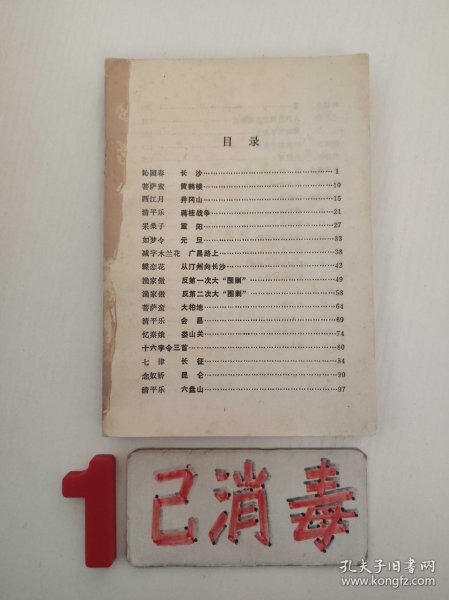 目录
沁园春 长沙……1
菩萨蛮 黄鹤楼……10
西江月 井冈山……15
清平乐 蒋桂战争……21
采桑子 重阳……27
如梦令 元旦……33
减字木兰花 广昌路上……38
蝶恋花 从汀州向长沙……43
渔家傲 反第一次大“围剿”……49
渔家傲 反第二次大“围剿”……58
菩萨蛮 大柏地……64
清平乐 会昌……69
忆秦娥 娄山关……74
十六字令三首……80
七律 长征……84
念奴娇 昆仑……90
清平乐 六盘山……97
1
己消毒
孔夫子旧书网
www.kongfz.com